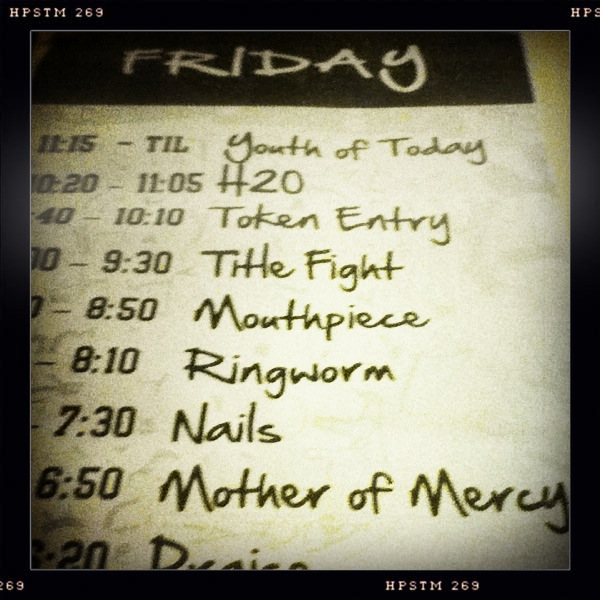 HPSTM 269
HPS
FRIDAY
11:15 - TIL Youth of Today
10:20 - 11:05 H2O
:40 - 10:10 Token Entry
00 - 9:30 Title Fight
- 8:50 Mouthpiece
- 8:10 Ringworm
7:30 Nails
6:50 Mother of Mercy
:20 Praise
269
HPSTM 269